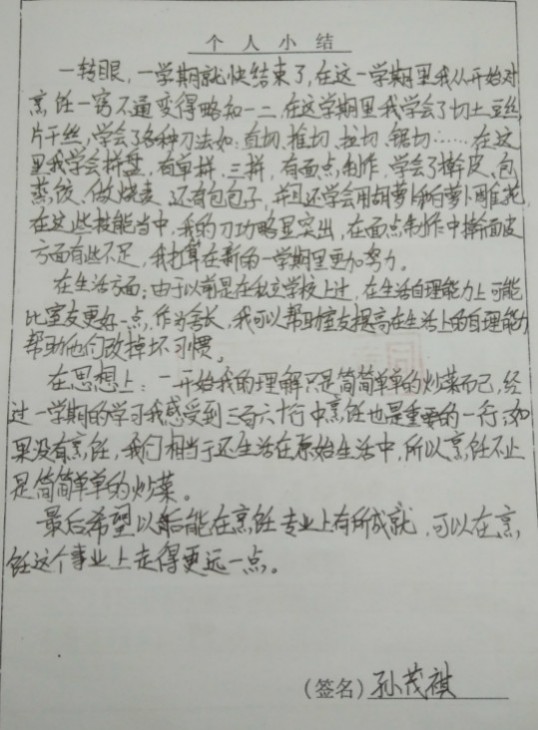 个人小结
一转眼，一学期就快结束了，在这一学期里我从开始对
烹饪一窍不通变得略知一二，在这学期里我学会了切土豆丝，
片干丝，学会了各种刀法如：直切、推切、拉切、锯切……在这
里我学会拼盘，有单拼，三拼，有面点制作，学会了擀皮、包
蒸饺、做烧麦 还有包包子，并且还学会用胡萝卜和白萝卜雕花，
在这些技能当中，我的刀功略显突出，在面点制作中擀面皮
方面有些不足，我打算在新的一学期里更加努力。
在生活方面：由于以前是在私立学校上过，在生活自理能力上可能
比室友更好一点，作为舍长，我可以帮助室友提高在生活上的自理能力
帮助他们改掉坏习惯。
在思想上：一开始我的理解只是简简单单的炒菜而已，经
过一学期的学习我感受到三百六十行中烹饪也是重要的一行；如
果没有烹饪，我们相当于还生活在原始生活中，所以烹饪不止
是简简单单的炒菜。
最后希望以后能在烹饪专业上有所成就，可以在烹
饪这个事业上走得更远一点。
(签名) 孙茂祺